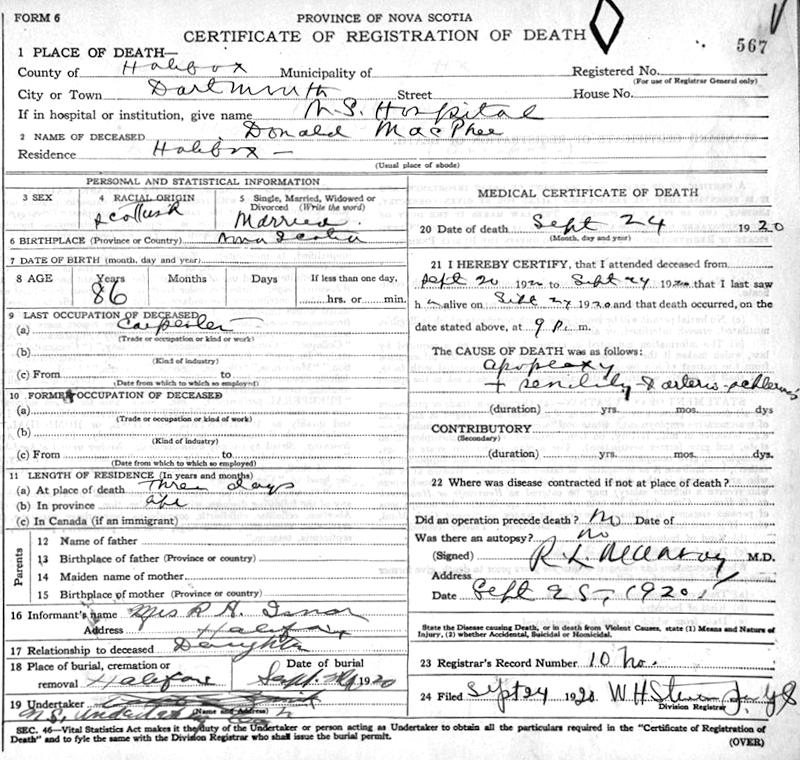 FORM 6
PROVINCE OF NOVA SCOTIA
CERTIFICATE OF REGISTRATION OF DEATH
567
1 PLACE OF DEATH—
County of Halifax Municipality of Registered No.
(For use of Registrar General only)
City or Town Dartmouth Street House No.
If in hospital or institution, give name N.S. Hospital
2 NAME OF DECEASED Donald MacPhee
Residence Halifax —
(Usual place of abode)
PERSONAL AND STATISTICAL INFORMATION
3 SEX
4 RACIAL ORIGIN Scottish
5 Single, Married, Widowed or Divorced (Write the word)
Married
6 BIRTHPLACE (Province or Country) Nova Scotia
7 DATE OF BIRTH (month, day and year)
8 AGE Years Months Days If less than one day,
86 hrs. or min.
9 LAST OCCUPATION OF DECEASED
(a) Carpenter
(Trade or occupation or kind or work)
(b)
(Kind of industry)
(c) From to
(Date from which to which so employed)
10 FORMER OCCUPATION OF DECEASED
(a)
(Trade or occupation or kind of work)
(b)
(Kind of industry)
(c) From to
(Date from which to which so employed)
11 LENGTH OF RESIDENCE (In years and months)
(a) At place of death Three days
(b) In province
(c) In Canada (if an immigrant)
Parents
12 Name of father
13 Birthplace of father (Province or country)
14 Maiden name of mother
15 Birthplace of mother (Province or country)
16 Informant's name Mrs R. H.
Address Halifax
17 Relationship to deceased Daughter
18 Place of burial, cremation or removal Halifax
Date of burial
Sept. 1920
19 Undertaker
(Name and Address)
N.S.
MEDICAL CERTIFICATE OF DEATH
20 Date of death Sept 24 1920
(Month, day and year)
21 I HEREBY CERTIFY, that I attended deceased from
Sept 20 1920 to Sept 24 1920 that I last saw
h alive on Sept 1920 and that death occurred, on the
date stated above, at 9 P. m.
The CAUSE OF DEATH was as follows:
apoplexy
+ senility
(duration) yrs. mos. dys
CONTRIBUTORY
(Secondary)
(duration) yrs. mos. dys.
22 Where was disease contracted if not at place of death?
Did an operation precede death? No Date of
Was there an autopsy? no
(Signed) R. L. M.D.
Address
Date Sept 25, 1920
State the Disease causing Death, or in death from Violent Causes, state (1) Means and Nature of
Injury, (2) whether Accidental, Suicidal or Homicidal.
23 Registrar's Record Number 10
24 Filed Sept 24 1920 W H
Division Registrar
SEC. 46—Vital Statistics Act makes it the duty of the Undertaker or person acting as Undertaker to obtain all the particulars required in the "Certificate of Registration of
Death" and to fyle the same with the Division Registrar who shall issue the burial permit.
(OVER)